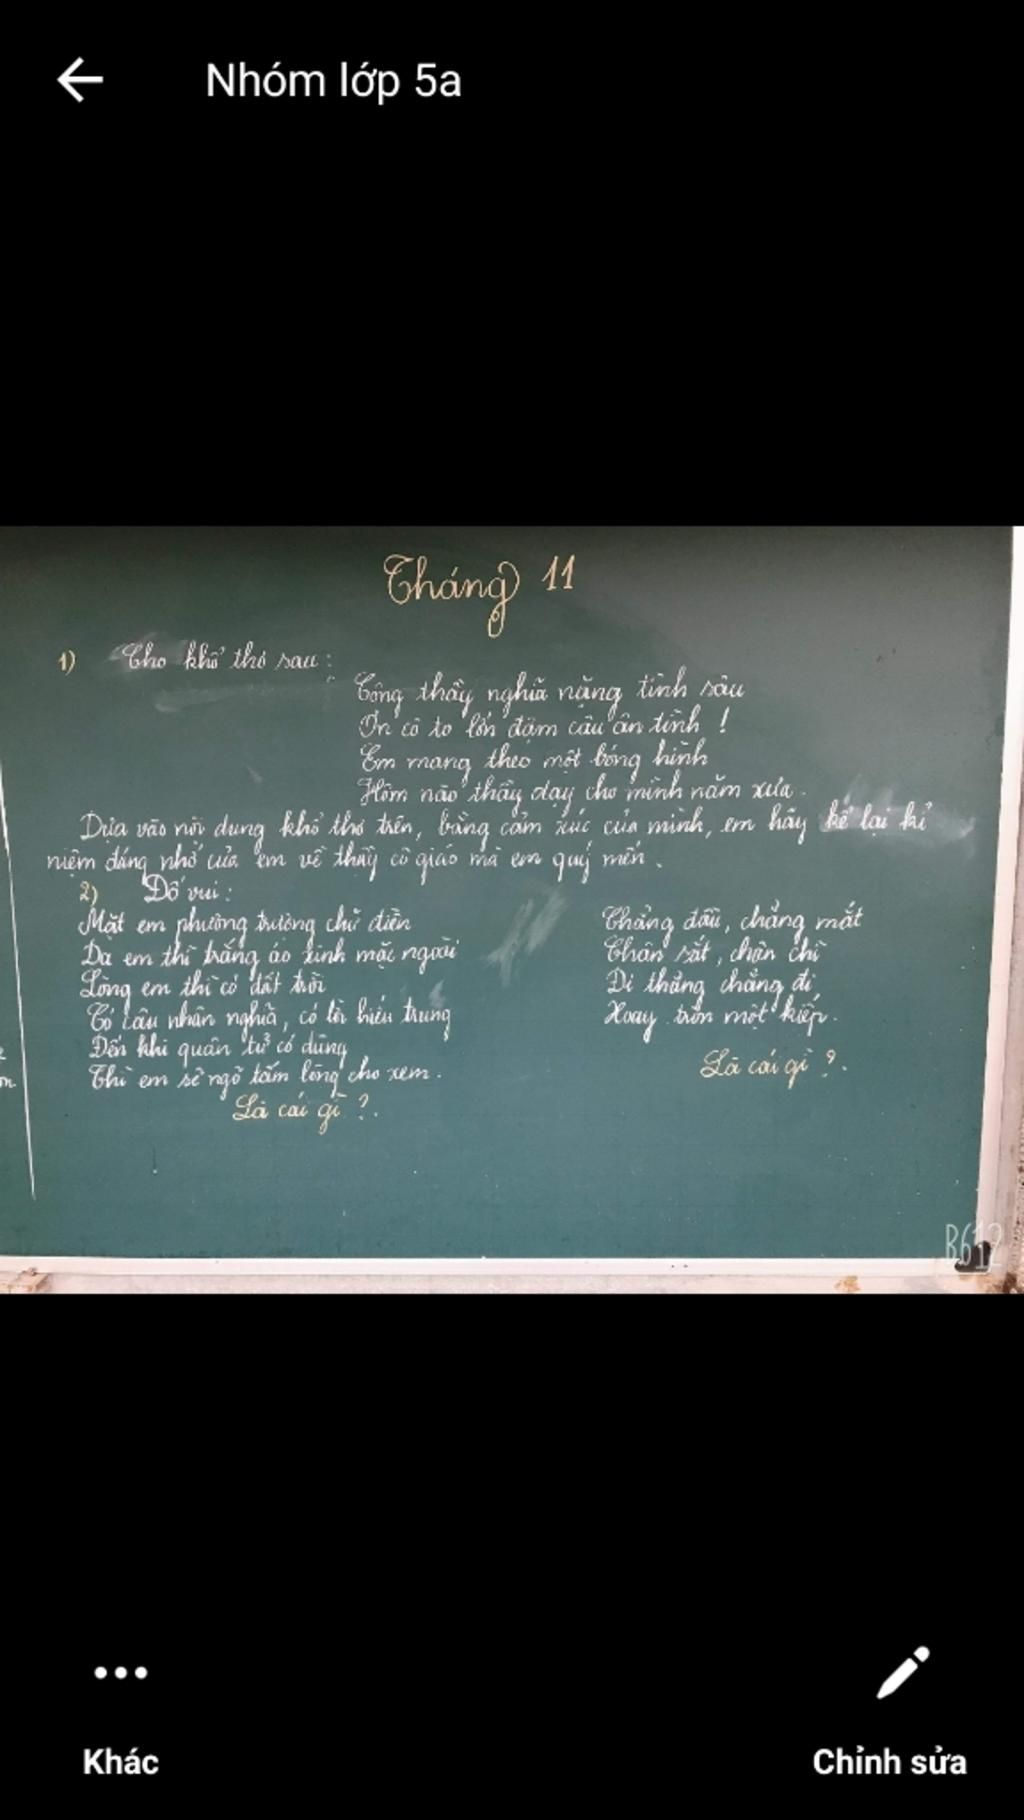 Nhóm lớp 5a
Tháng 11
1) Cho khổ thơ sau:
Công thầy nghĩa nặng tình sâu
Ơn cô to lớn đậm câu ân tình !
Em mang theo một bóng hình
Hôm nào thầy dạy cho mình năm xưa.
Dựa vào nội dung khổ thơ trên, bằng cảm xúc của mình, em hãy kể lại kỉ
niệm đáng nhớ của em về thầy cô giáo mà em quý mến.
2) Đố vui:
Mặt em phương trường chữ điền
Da em thì trắng áo xinh mặc ngoài
Lòng em thì có đất trời
Có câu nhân nghĩa, có lời hiếu trung
Đến khi quân tử có dùng
Thì em sẽ ngỏ tấm lòng cho xem.
Là cái gì ?.
Chẳng đầu, chẳng mắt
Chân sắt, chân chì
Đi thẳng chẳng đi
Xoay tròn một kiếp.
Là cái gì ?.
B612
Khác
Chỉnh sửa